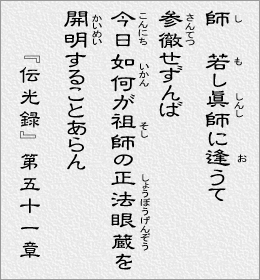 師　若し眞師に逢うて
参徹せずんば
今日如何が祖師の正法眼蔵を
開明することあらん
『伝光錄』第五十一章
し
も
しんし
お
さんてつ
こんにち
いかん
そし
しょうぼうげんぞう
かいめい